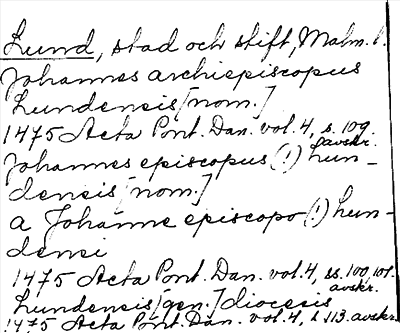 Lund, stad och stift, Malm. l.
Johannes archiepiscopus
Lundensis [nom.]
1475 Acta Pont. Dan. vol. 4, s. 109.
avskr.
Johannes episcopus (!) Lun-
densis [nom.]
a Johanne episcopo (!) Lun-
densi
1475 Acta Pont. Dan. vol. 4, ss. 100, 101.
avskr.
Lundensis [gen.] diocesis
1475 Acta Pont. Dan. vol. 4, s. 113. avskr.